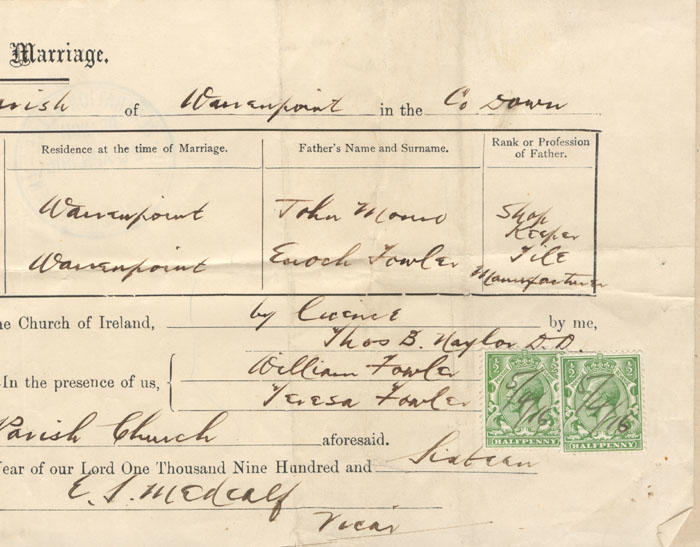 Marriage.
of Warrenpoint in the Co Down
Residence at the time of Marriage. Father's Name and Surname. Rank or Profession of Father.
Warrenpoint John Shop Keeper
Warrenpoint Enoch Fowler Tile Manufacturer
Church of Ireland, by licence by me,
Thos B. Naylor D.D.
In the presence of us, William Fowler
Teresa Fowler
Parish Church aforesaid.
Year of our Lord One Thousand Nine Hundred and Sixteen
Medcalf
Vicar
½ ½ HALFPENNY
½ ½ HALFPENNY